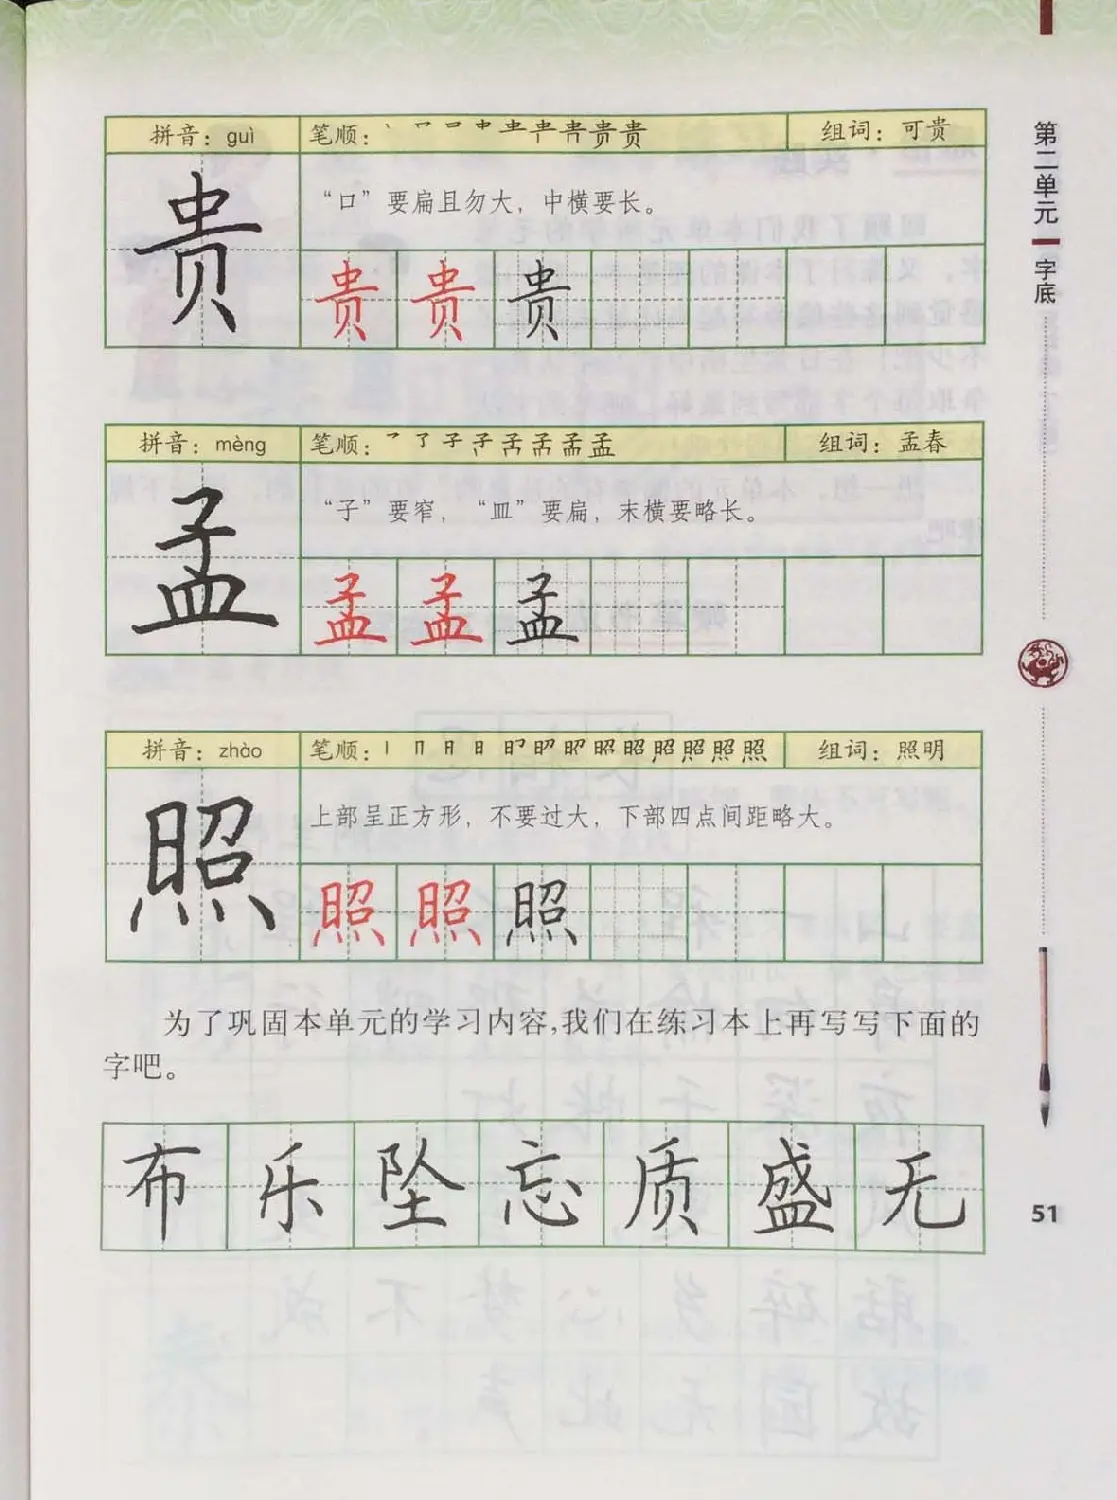 第二单元 字底
拼音：guì 笔顺： 组词：可贵
贵
“口”要扁且勿大，中横要长。
贵 贵 贵
拼音：mèng 笔顺： 组词：孟春
孟
“子”要窄，“皿”要扁，末横要略长。
孟 孟 孟
拼音：zhào 笔顺： 组词：照明
照
上部呈正方形，不要过大，下部四点间距略大。
照 照 照
为了巩固本单元的学习内容,我们在练习本上再写写下面的
字吧。
布 乐 坠 忘 质 盛 无
51